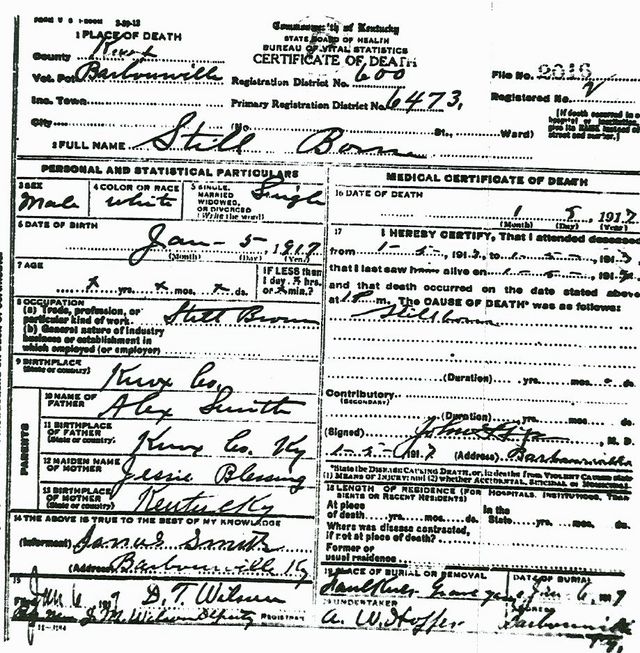 Commonwealth of Kentucky
STATE BOARD OF HEALTH
BUREAU OF VITAL STATISTICS
CERTIFICATE OF DEATH
1 PLACE OF DEATH
County Knox
Vot. Pct. Barbourville
Registration District No. 600
File No. 2016
Inc. Town
Primary Registration District No. 6473
Registered No. 2
City (No. St., Ward)
2 FULL NAME Still Born
PERSONAL AND STATISTICAL PARTICULARS
3 SEX
Male
4 COLOR OR RACE
White
5 SINGLE, MARRIED WIDOWED, OR DIVORCED
(Write the word)
Single
6 DATE OF BIRTH
Jan - 5 - 1917
(Month) (Day) (Year)
7 AGE
x yrs. x mos. x ds.
IF LESS than
1 day, hrs.
or min.?
8 OCCUPATION
(a) Trade, profession, or
particular kind of work. Still Born
(b) General nature of industry
business or establishment in
which employed (or employer)
9 BIRTHPLACE
(State or country) Knox Co.
PARENTS
10 NAME OF
FATHER Alex Smith
11 BIRTHPLACE
OF FATHER
(State or country) Knox Co. Ky
12 MAIDEN NAME
OF MOTHER Jessie Blessing
13 BIRTHPLACE
OF MOTHER
(State or country) Kentucky
14 THE ABOVE IS TRUE TO THE BEST OF MY KNOWLEDGE
(Informant) Smith
(Address) Barbourville Ky
15
Filed Jan 6 1917 D. T. Wilson
J. M. Wilson Deputy REGISTRAR
MEDICAL CERTIFICATE OF DEATH
16 DATE OF DEATH
1 5, 1917
(Month) (Day) (Year)
17 I HEREBY CERTIFY, That I attended deceased
from 1-5-, 1917, to 1-5-, 1917
that I last saw h alive on 1-5-, 191
and that death occurred on the date stated above
at m. The CAUSE OF DEATH* was as follows:
Stillborn
(Duration) yrs. mos. ds.
Contributory
(SECONDARY)
(Duration) yrs. mos. ds.
(Signed) M. D.
1-5-1917 (Address) Barbourville
*State the DISEASE CAUSING DEATH, or, in deaths from VIOLENT CAUSES state
(1) MEANS OF INJURY; and (2) whether ACCIDENTAL, SUICIDAL or HOMICIDAL
18 LENGTH OF RESIDENCE (FOR HOSPITALS, INSTITUTIONS, TRAN-
SIENTS OR RECENT RESIDENTS)
At place
of death yrs. mos. ds.
In the
State yrs. mos. ds.
Where was disease contracted,
if not at place of death?
Former or
usual residence
19 PLACE OF BURIAL OR REMOVAL
Graveyard
DATE OF BURIAL
Jan 6, 1917
20 UNDERTAKER
A. W. Hopper
ADDRESS
Barbourville
Ky.